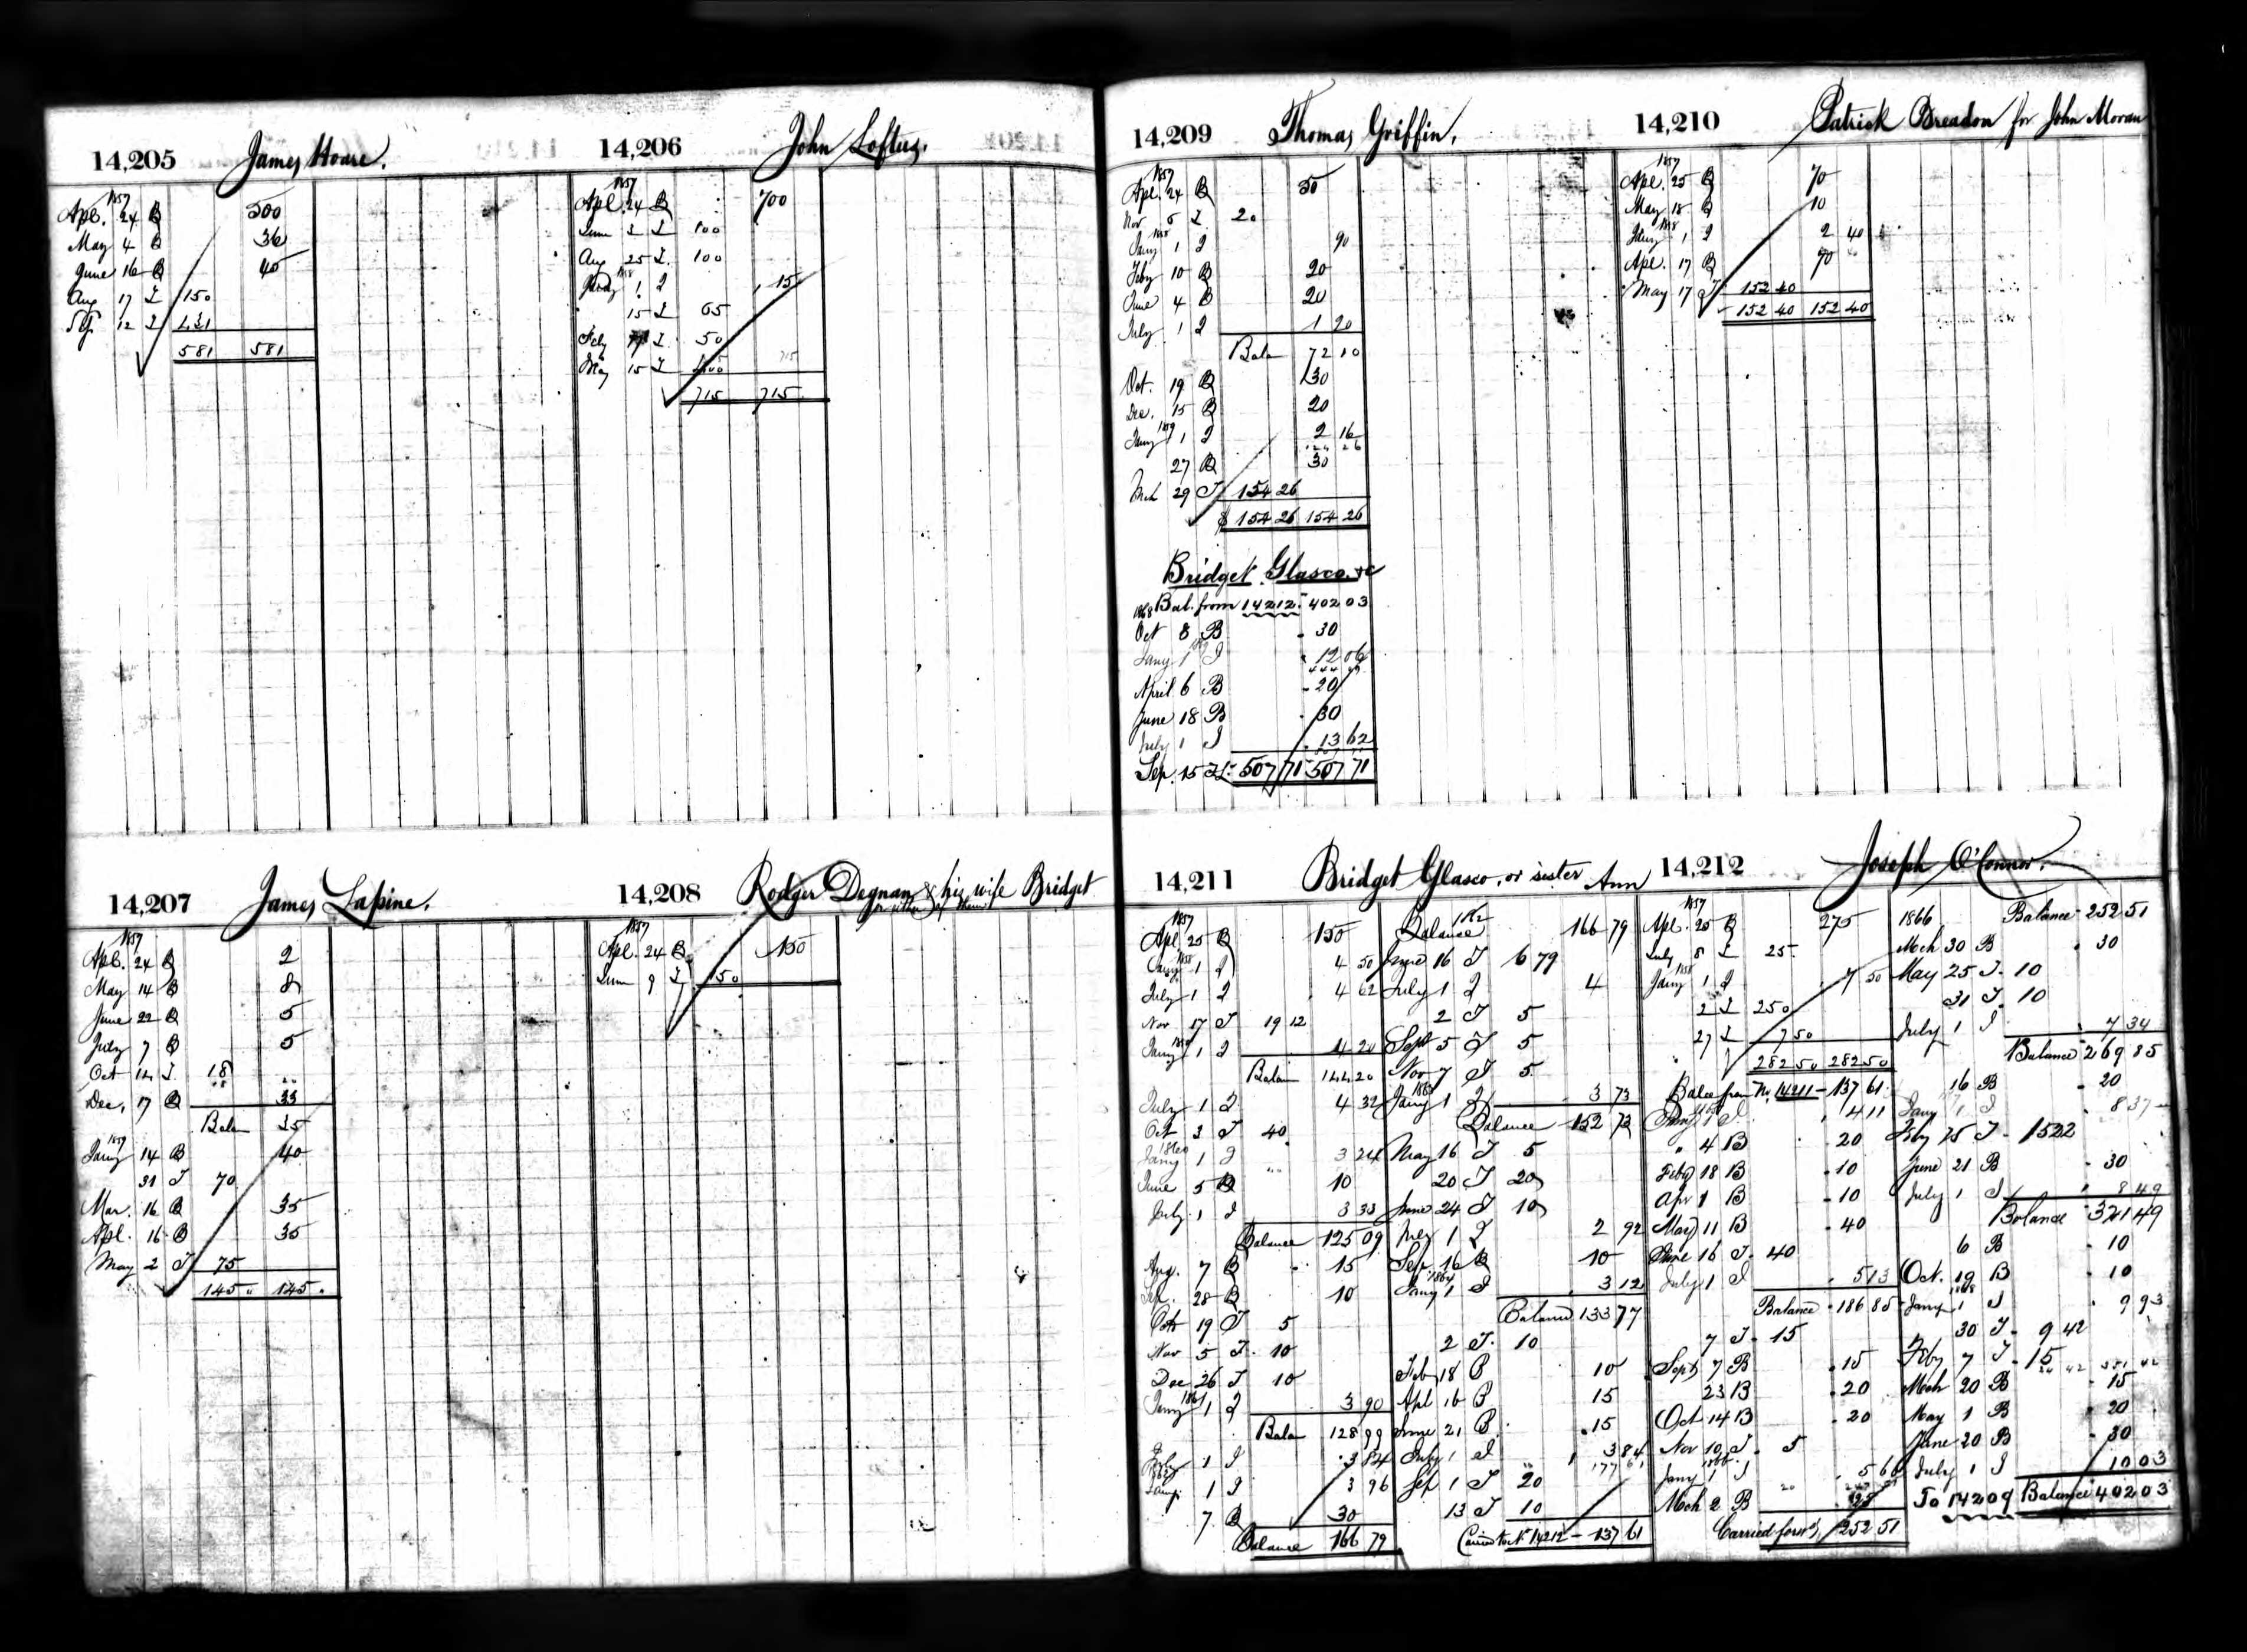 14,205 James Hoare.
1857
Apl. 24 B 500
May 4 B 36
June 16 B 45
Aug 17 I 150
12 I 431
581 581
14,206 John Loftus.
1857
Apl. 24 B 700
June 3 I 100
Aug 25 I. 100
1858
1 I 15
15 I 65
Feby I. 50
May 15 I
715 715
14,207 James Lapine.
1857
Apl. 24 B 2
May 14 B 8
June 22 B 5
July 7 B 5
Oct 14 I. 18
Dec. 17 B 33
Balan 35
1859
Jany 14 B 40
31 I 70
Mar. 16 B 35
Apl. 16 B 35
May 2 I 75
145 " 145 .
14,208 Rodger Degnan & his wife Bridget
or either of them
1857
Apl. 24 B 150
June 9 I 150
14,209 Thomas Griffin.
1857
Apl. 24 B 50
Nov 5 I 20
1858
Jany 1 I 90
Feby 10 B 20
June 4 B 20
July 1 I 1 20
Balan 72 10
Oct. 19 B 30
Dec. 15 B 20
1859
Jany 1 I 2 16
124 26
27 B 30
Mch 29 I 154 26
$ 154 26 154 26
Bridget Glasco. &c
1868 Bal. from 14212. 402 03
Oct 8 B 30
1869
Jany 1 I 12 06
444 09
April 6 B 20
June 18 B 30
July 1 I 13 62
Sep. 15 I 507 71 507 71
14,210 Patrick Breadon for John Moran
1857
Apl. 25 B 70
May 18 B 10
1858
Jany 1 I 2 40
Apl. 17 B 70
May 17 I 152 40
152 40 152 40
14,211 Bridget Glasco, or sister Ann
1857
Apl. 25 B 150
1858
Jany 1 I 4 50
July 1 I 4 62
Nov 17 I 19 12
1859
Jany 1 I 4 20
Balan 144 20
July 1 I 4 32
Oct 3 I 40
1860
Jany 1 I 3 24
June 5 B 10
July 1 I 3 33
Balance 125 09
Aug. 7 B 15
28 B 10
Oct 19 I 5
Nov 5 I. 10
Dec 26 I 10
1861
Jany 1 I 3 90
Balan 128 99
July 1 I 3 84
1862
Jany. 1 I 3 96
7 B 30
Balance 166 79
1862
Balance 166 79
June 16 I 6 79
July 1 I 4
2 I 5
Sept 5 I 5
Nov 7 I 5
1863
Jany 1 I 3 73
Balance 152 73
May 16 I 5
20 I 20
June 24 I 10
July 1 I 2 92
Sep. 16 B 10
1864
Jany 1 I 3 12
Balance 133 77
2 I. 10
Feb 18 B 10
Apl 16 B 15
June 21 B 15
July 1 I 3 84
177 61
Sep 1 I 20
13 I 10
Carried to No 14212 - 137 61
14,212 Joseph O'Connor.
1857
Apl. 25 B 275
July 8 I 25.
1858
Jany 1 I 7 50
2 I 250
27 I 7 50
282 50 282 50
Balce from No. 14211 - 137 61
Jany 1 I 4 11
" 4 B 20
Feby 18 B 10
Apr 1 B 10
May 11 B 40
June 16 I. 40
July 1 I 5 13
Balance 186 85
7 I. 15
Sept 7 B 15
23 B 20
Oct 14 B 20
Nov 10 I. 5
1866
Jany 1 I 5 66
Mch 2 B 25
Carried forwd. 252 51
1866 Balance 252 51
Mch 30 B 30
May 25 I. 10
31 I. 10
July 1 I 7 34
Balance 269 85
16 B 20
Jany 1 I 8 37
Feby 15 I. 15 22
June 21 B 30
July 1 I 8 49
Balance 321 49
6 B 10
Oct. 19 B 10
1868
Jany 1 I 9 93
30 I. 9 42
Feby 7 I. 15
24 42 351 42
Mch 20 B 15
May 1 B 20
June 20 B 30
July 1 I 10 03
To 14209 Balance 402 03